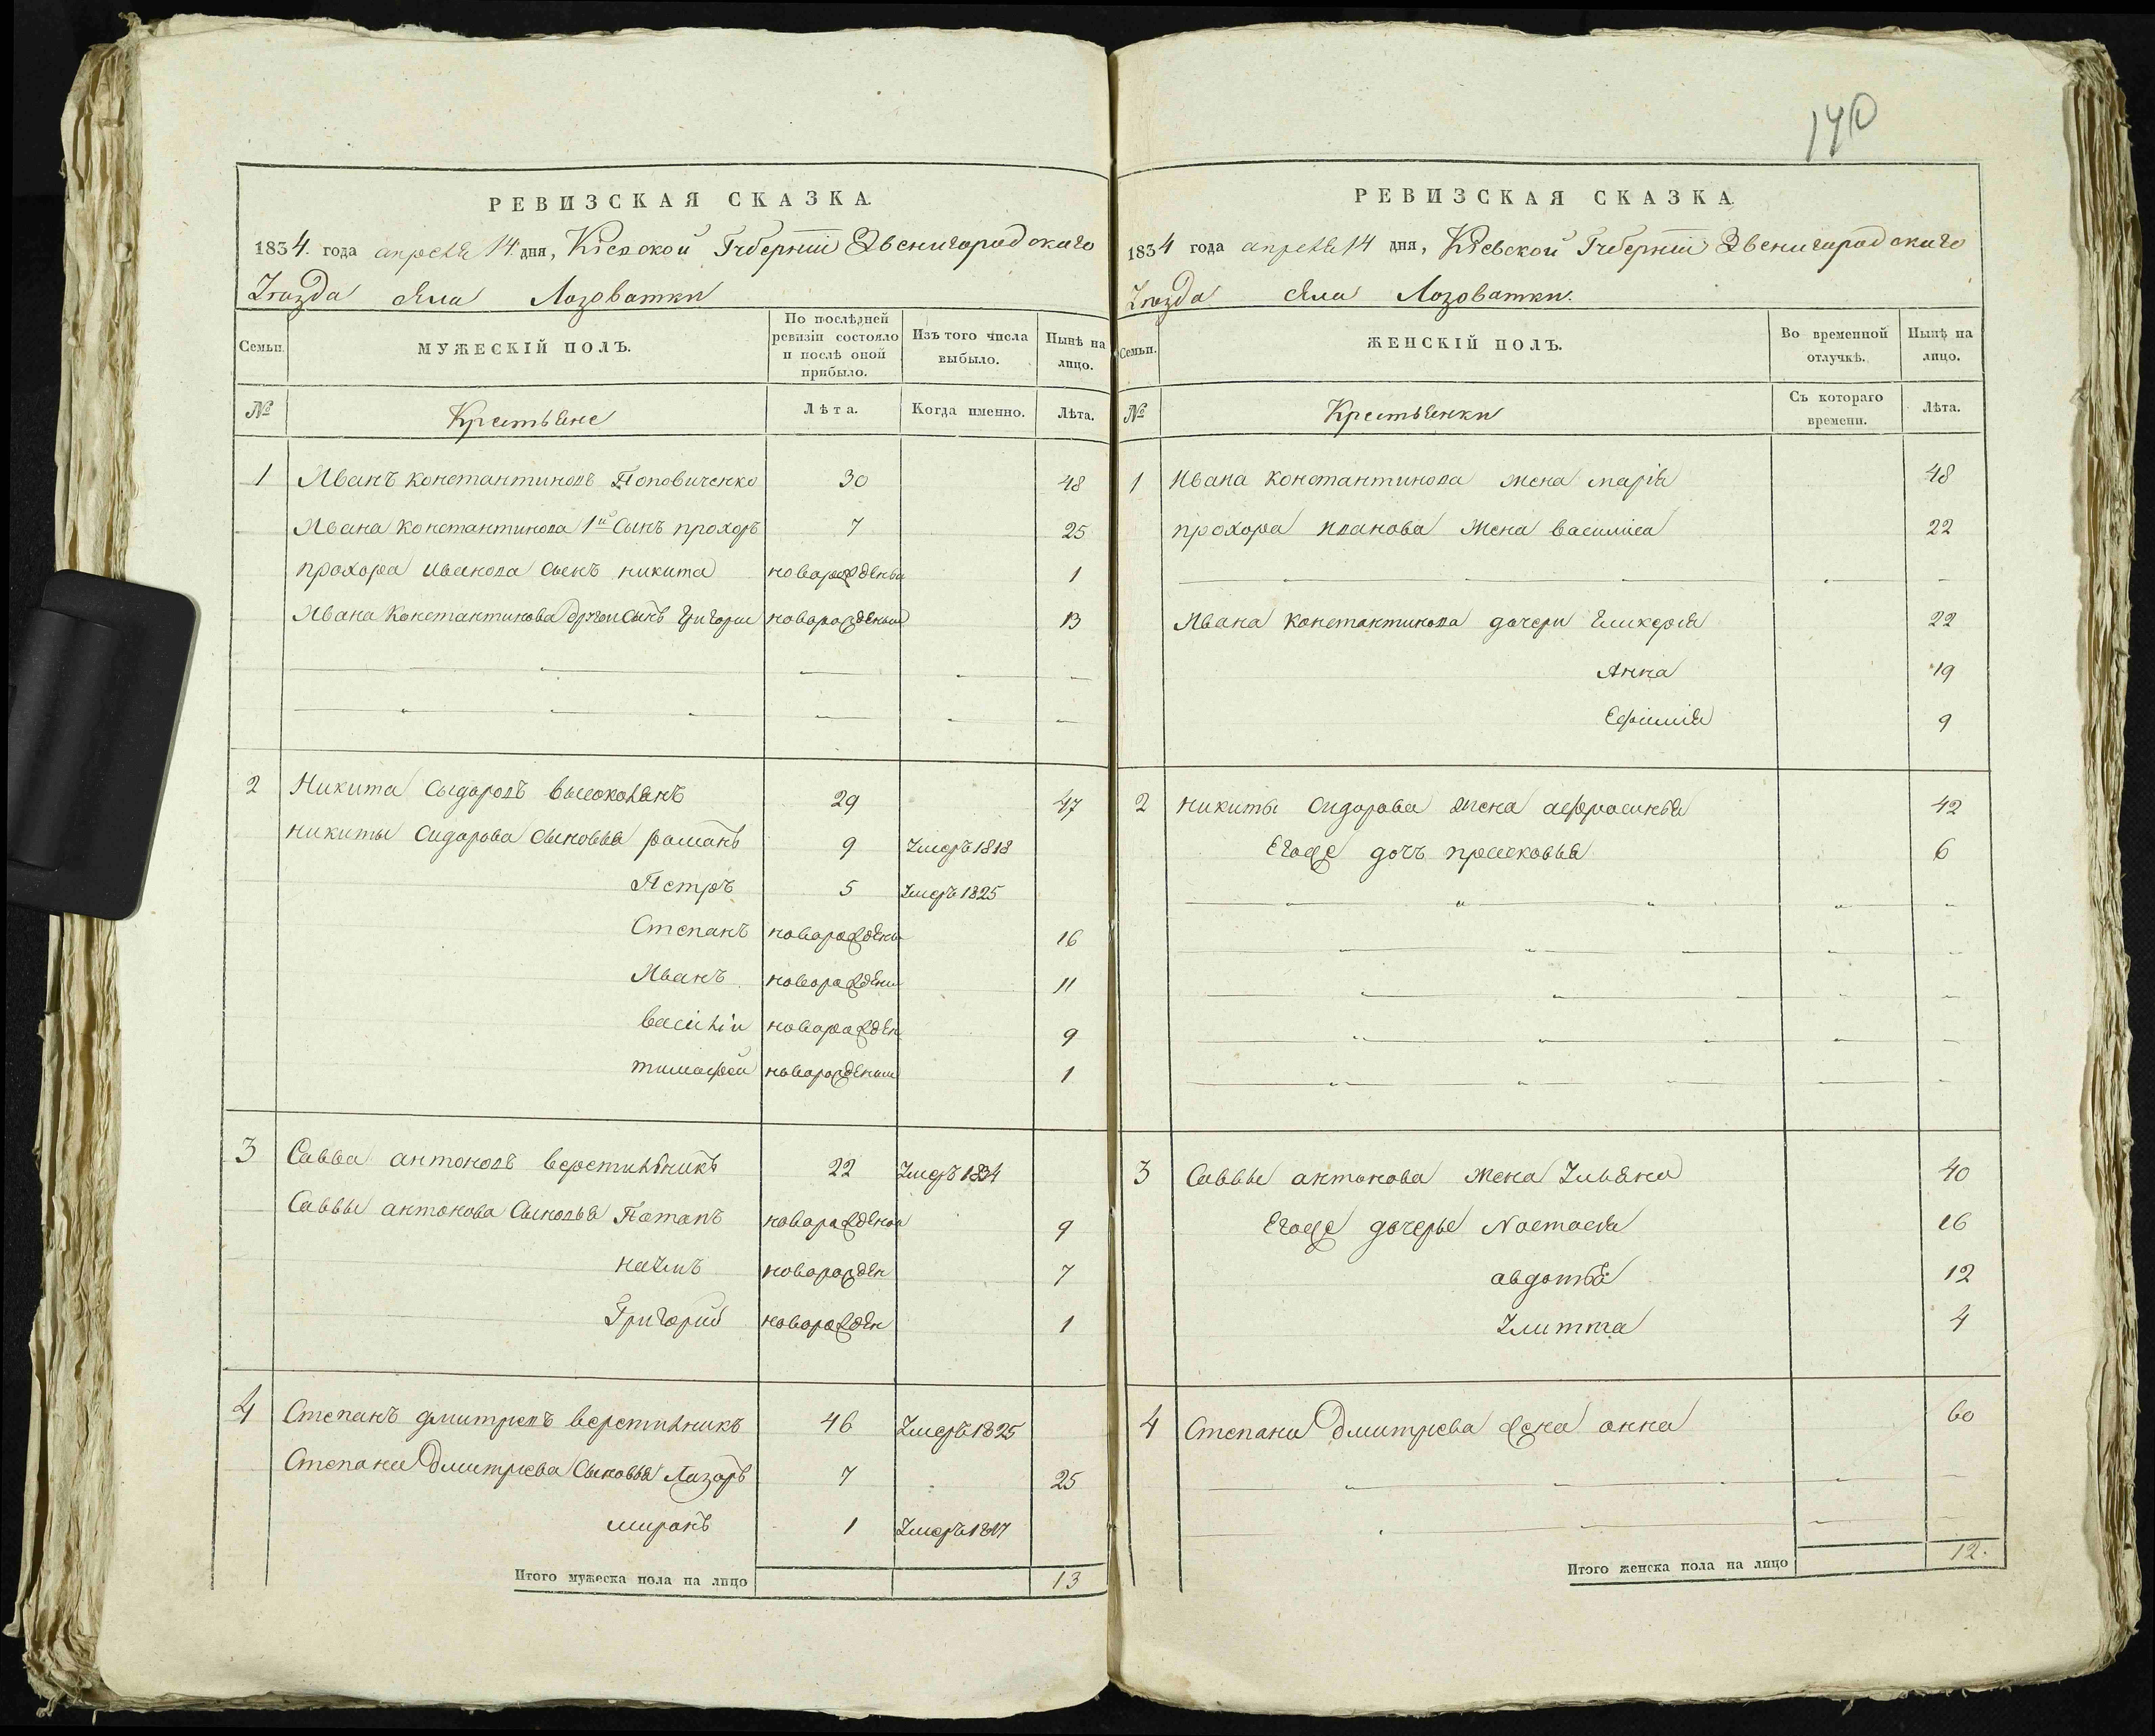 140
РЕВИЗСКАЯ СКАЗКА.
1834. года апреля 14 дня, Кіевской Губерніи Звенигородскаго
Уезда села Лозоватки
Семьи.
МУЖЕСКІЙ ПОЛЪ.
По послѣдней ревизіи состояло и послѣ оной прибыло.
Изъ того числа выбыло.
Нынѣ на лицо.
№ Крестьяне Лѣта. Когда именно. Лѣта.
1 Иванъ Константиновъ Поповиченко 30 48
Ивана Константинова 1й Сынъ прохоръ 7 25
прохора Иванова Сынъ никита новорожденый 1
Ивана Константинова другои Сынъ Григории новорожденый 13
2 Никита Сыдоровъ высоколянъ 29 47
никиты Сидорова Сыновья романъ 9 Умеръ 1818
Петръ 5 Умеръ 1825
Степанъ новорожденый 16
Иванъ новорожденый 11
василіи новорожден 9
тимофей новорожденый 1
3 Савва антоновъ верстильникъ 22 Умеръ 1834
Саввы антонова Сыновья Потапъ новорожденой 9
наумъ новорожден 7
Григорий новорожден 1
4 Степанъ дмитревъ верстильникъ 46 Умеръ 1825
Степана Дмитрева Сыновья Лазоръ 7 25
миронъ 1 Умеръ 1817
Итого мужеска пола на лицо 13
РЕВИЗСКАЯ СКАЗКА
1834 года апреля 14 дня, Кіевской Губерніи Звенигородскаго
Уезда села Лозоватки.
Семьи.
ЖЕНСКІЙ ПОЛЪ.
Во временной отлучкѣ.
Нынѣ на лицо.
№ Крестьянки Съ котораго времени. Лѣта.
1 Ивана Константинова жена марія 48
прохора Иванова Жена василиса 22
Ивана Константинова дочери Гликерія 22
Анна 19
Ефимія 9
2 никиты Сидорова жена афросинья 42
Егоже дочъ прасковья 6
3 Саввы антонова жена Ульяна 40
Егоже дочерье Настасья 16
авдотья 12
Улитта 4
4 Степана Дмитрева жена анна 60
Итого женска пола на лицо 12.